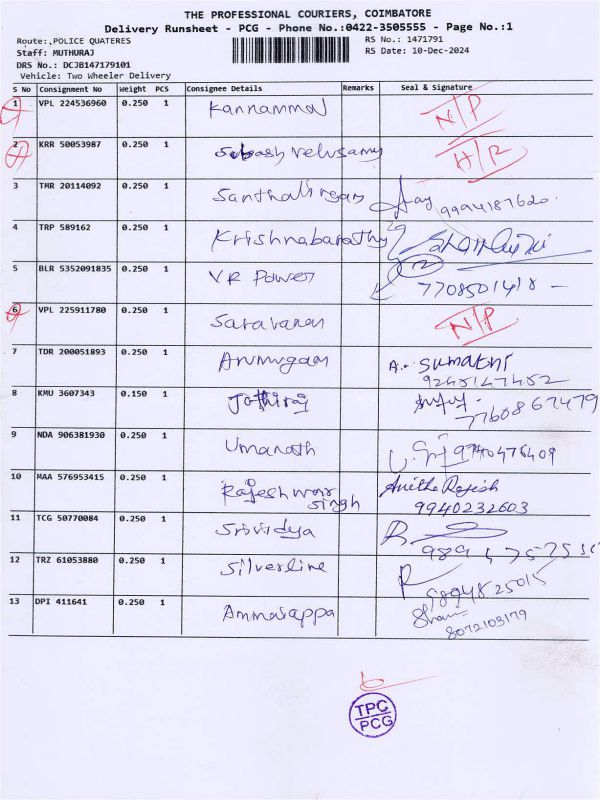 THE PROFESSIONAL COURIERS, COIMBATORE
Delivery Runsheet - PCG - Phone No.:0422-3505555 - Page No.:1
Route:,POLICE QUATERES RS No.: 1471791
Staff: MUTHURAJ RS Date: 10-Dec-2024
DRS No.: DCJB147179101
Vehicle: Two Wheeler Delivery
S No Consignment No Weight PCS Consignee Details Remarks Seal & Signature
1 VPL 224536960 0.250 1 Kannammal N/P
2 KRR 50053987 0.250 1 Subash Velusamy H/R
3 TMR 20114092 0.250 1 Santhalingam 9994187620
4 TRP 589162 0.250 1 Krishnabarathy
5 BLR 5352091835 0.250 1 VR Power 2 7708501418
6 VPL 225911780 0.250 1 Saravanan N/P
7 TDR 200051893 0.250 1 Arumugam A. Sumathi
9245147452
8 KMU 3607343 0.150 1 Jothiraj
7760867479
9 NDA 906381930 0.250 1 Umanath 9740476409
10 MAA 576953415 0.250 1 Rajeshwar Singh Anitha Rajesh
9940232603
11 TCG 50770084 0.250 1 Srividya
12 TRZ 61053880 0.250 1 Silverline
9894825015
13 DPI 411641 0.250 1 Ammasappa
8072103179
TPC
PCG